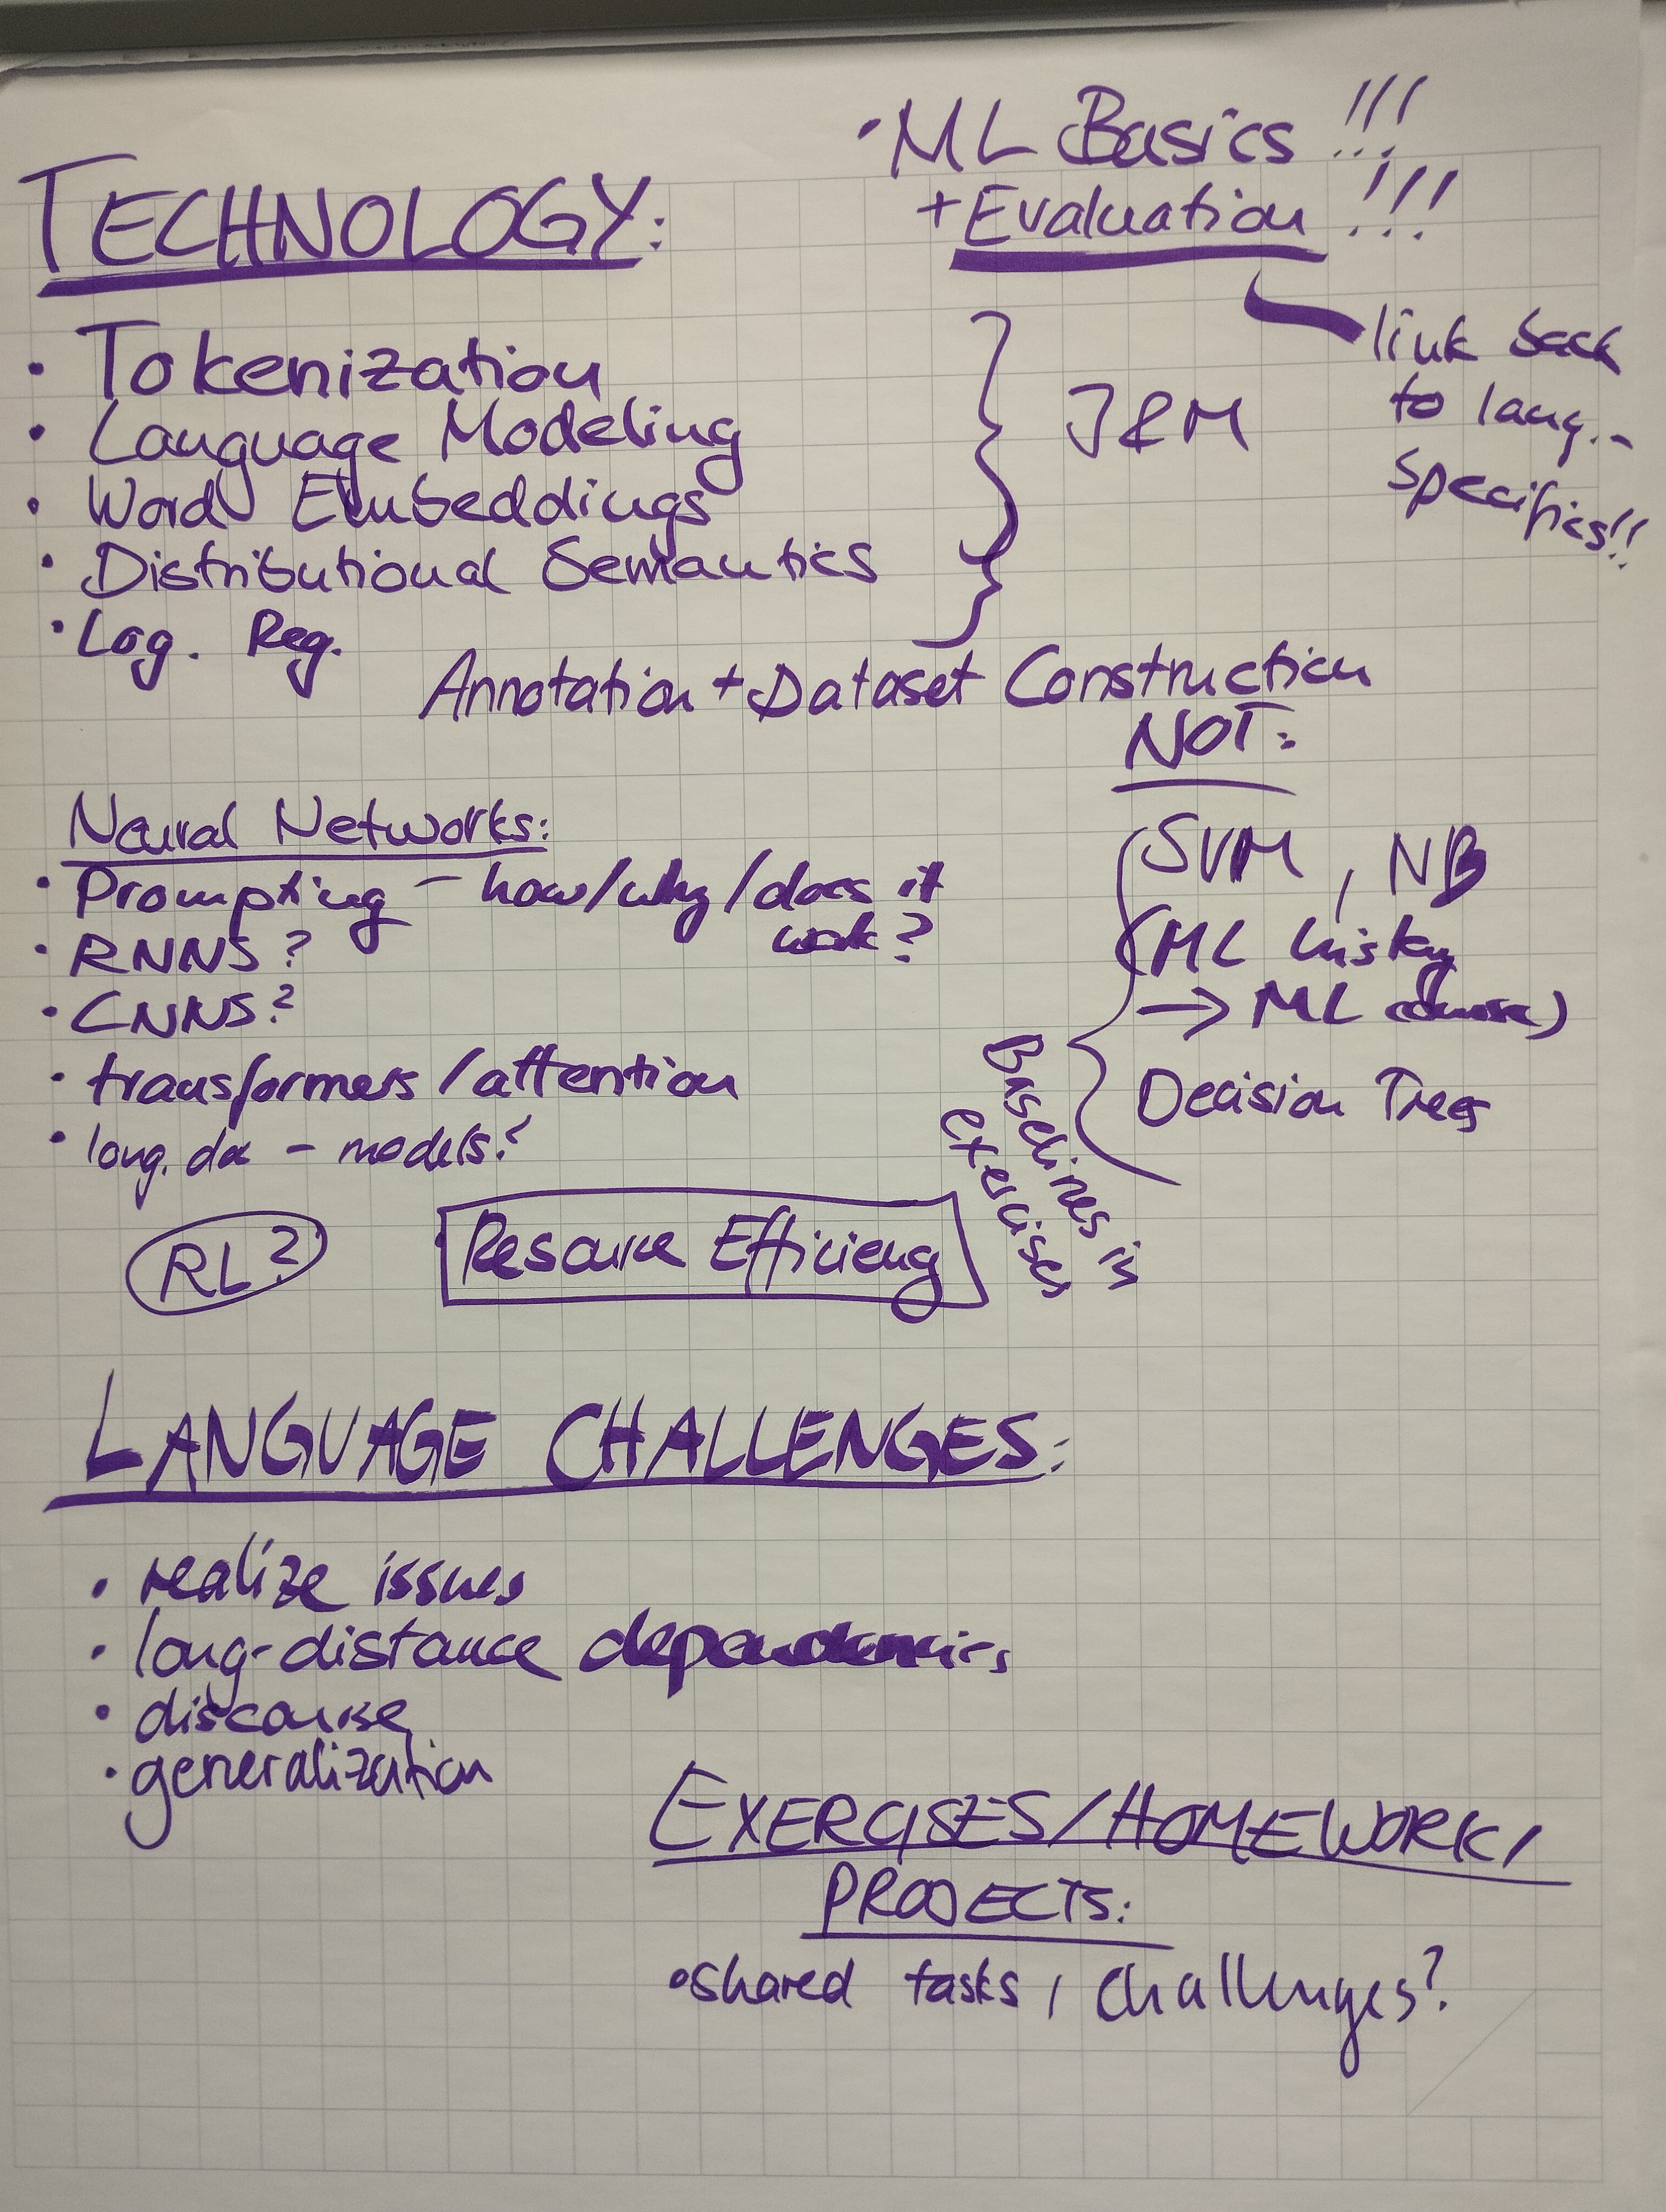 • ML Basics !!!
+ Evaluation !!!
link back
to lang.-
specifics!!
TECHNOLOGY:
• Tokenization
• Language Modeling
• Word Embeddings
• Distributional Semantics
• Log. Reg.
J&M
Annotation + Dataset Construction
Neural Networks:
• Prompting – how/why/does it
work?
• RNNs?
• CNNs?
• transformers/attention
• long. doc – models?
RL?
Resource Efficiency
NOT:
SVM, NB
(ML history
→ ML course)
Decision Trees
Baselines in
exercises
LANGUAGE CHALLENGES:
• realize issues
• long-distance dependencies
• discourse
• generalization
EXERCISES/HOMEWORK/
PROJECTS:
• shared tasks, challenges?